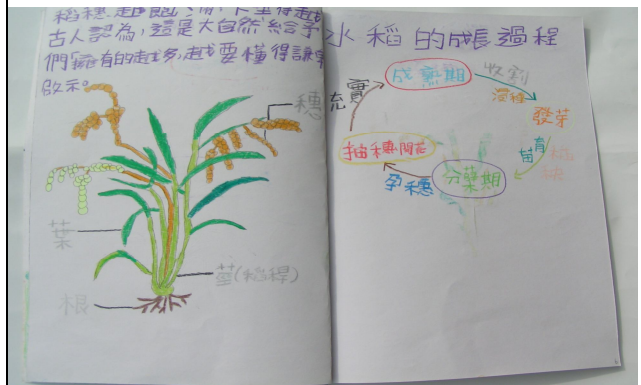 稻穗越飽
古人認為,這是大自然給予
們「擁有的越多,越要懂得謙
啟示。
穗
葉
莖(稻稈)
根
水稻的成長過程
成熟期
收割
浸種
發芽
育苗
分蘗期
孕穗
抽穗開花
充實